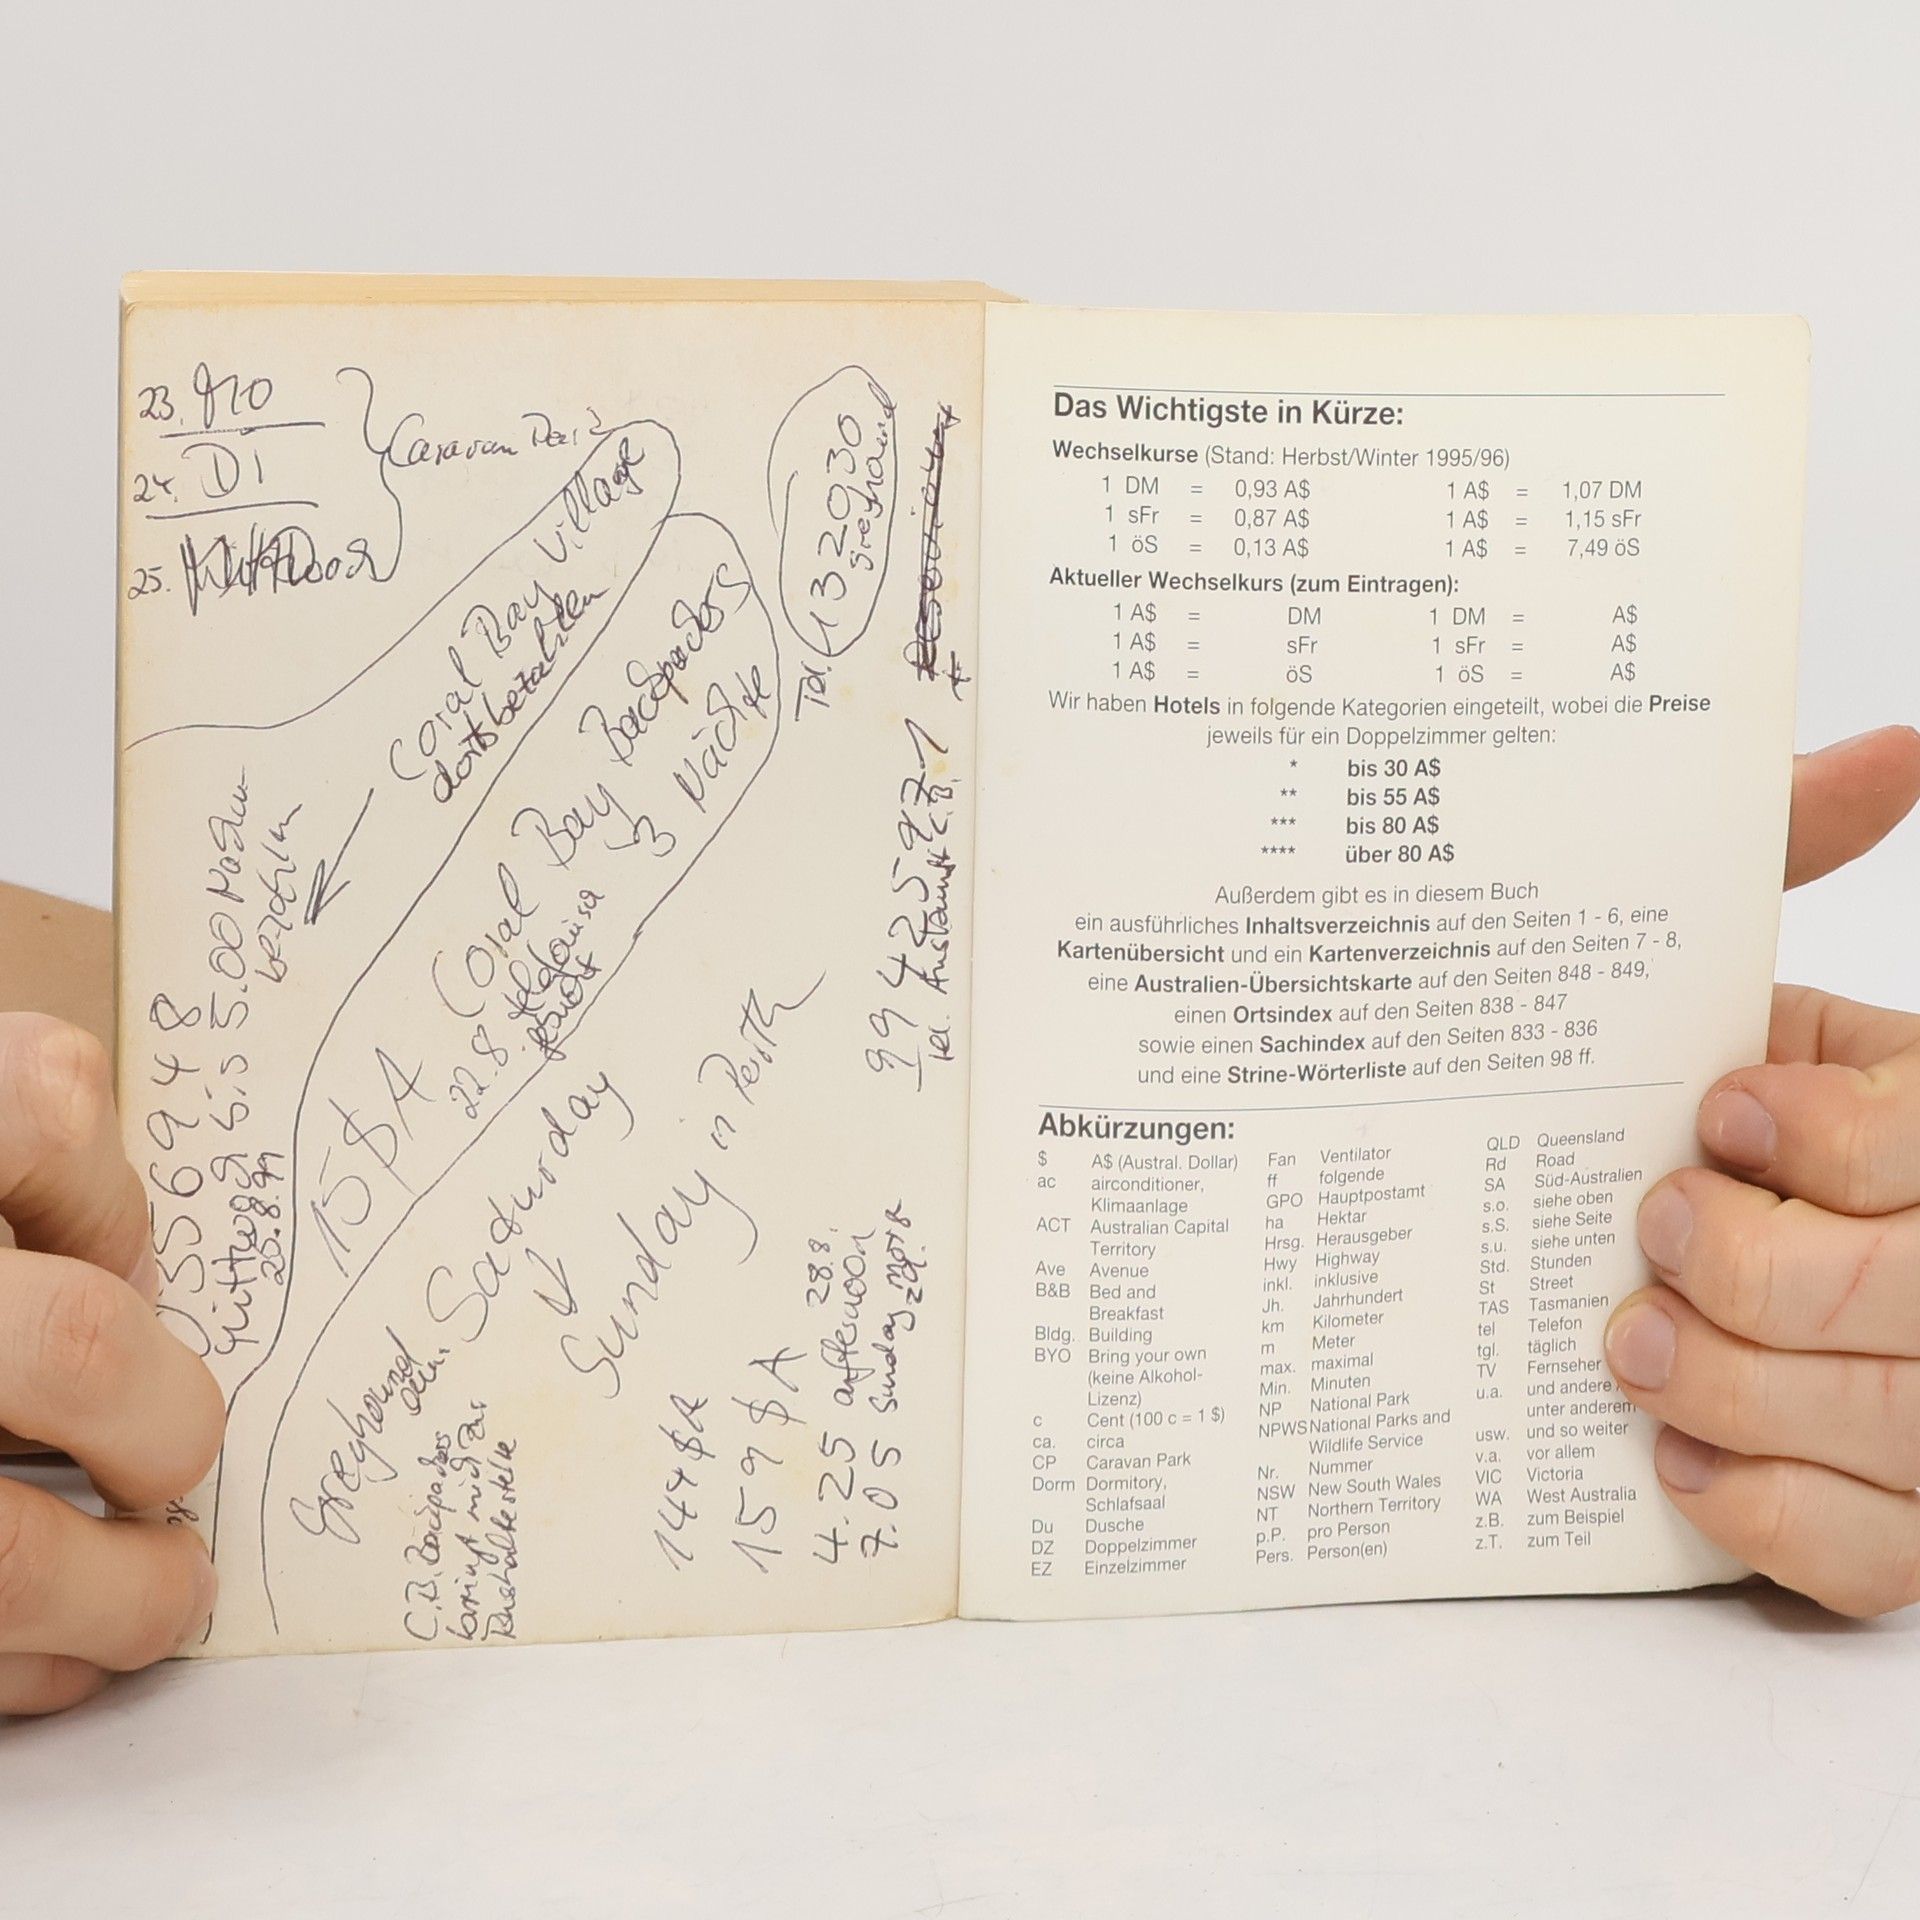 23. Mo
24. Di
25.
Caravan Park
Coral Bay Village
dort bezahlen
Coral Bay Backpackers
3 Nächte
22.8
15 $ A
Tel. 13 2030
Greyhound
99 425971
tel. Auskunft C.B.
56948
bis 5.00
bezahlen
Gültig
25.8.99
Greyhound
Saturday
Sunday in Perth
C.B. Backpackers
bringt mich zur
Bushaltestelle
144 $A
159 $ A
4.25 afternoon 28.8.
7.05 Sunday
Das Wichtigste in Kürze:
Wechselkurse (Stand: Herbst/Winter 1995/96)
1 DM = 0,93 A$ 1 A$ = 1,07 DM
1 sFr = 0,87 A$ 1 A$ = 1,15 sFr
1 öS = 0,13 A$ 1 A$ = 7,49 öS
Aktueller Wechselkurs (zum Eintragen):
1 A$ = DM 1 DM = A$
1 A$ = sFr 1 sFr = A$
1 A$ = öS 1 öS = A$
Wir haben Hotels in folgende Kategorien eingeteilt, wobei die Preise
jeweils für ein Doppelzimmer gelten:
* bis 30 A$
** bis 55 A$
*** bis 80 A$
**** über 80 A$
Außerdem gibt es in diesem Buch
ein ausführliches Inhaltsverzeichnis auf den Seiten 1 - 6, eine
Kartenübersicht und ein Kartenverzeichnis auf den Seiten 7 - 8,
eine Australien-Übersichtskarte auf den Seiten 848 - 849,
einen Ortsindex auf den Seiten 838 - 847
sowie einen Sachindex auf den Seiten 833 - 836
und eine Strine-Wörterliste auf den Seiten 98 ff.
Abkürzungen:
$ A$ (Austral. Dollar)
ac airconditioner,
Klimaanlage
ACT Australian Capital
Territory
Ave Avenue
B&B Bed and
Breakfast
Bldg. Building
BYO Bring your own
(keine Alkohol-
Lizenz)
c Cent (100 c = 1 $)
ca. circa
CP Caravan Park
Dorm Dormitory,
Schlafsaal
Du Dusche
DZ Doppelzimmer
EZ Einzelzimmer
Fan Ventilator
ff folgende
GPO Hauptpostamt
ha Hektar
Hrsg. Herausgeber
Hwy Highway
inkl. inklusive
Jh. Jahrhundert
km Kilometer
m Meter
max. maximal
Min. Minuten
NP National Park
NPWS National Parks and
Wildlife Service
Nr. Nummer
NSW New South Wales
NT Northern Territory
p.P. pro Person
Pers. Person(en)
QLD Queensland
Rd Road
SA Süd-Australien
s.o. siehe oben
s.S. siehe Seite
s.u. siehe unten
Std. Stunden
St Street
TAS Tasmanien
tel Telefon
tgl. täglich
TV Fernseher
u.a. und andere
unter anderem
usw. und so weiter
v.a. vor allem
VIC Victoria
WA West Australia
z.B. zum Beispiel
z.T. zum Teil